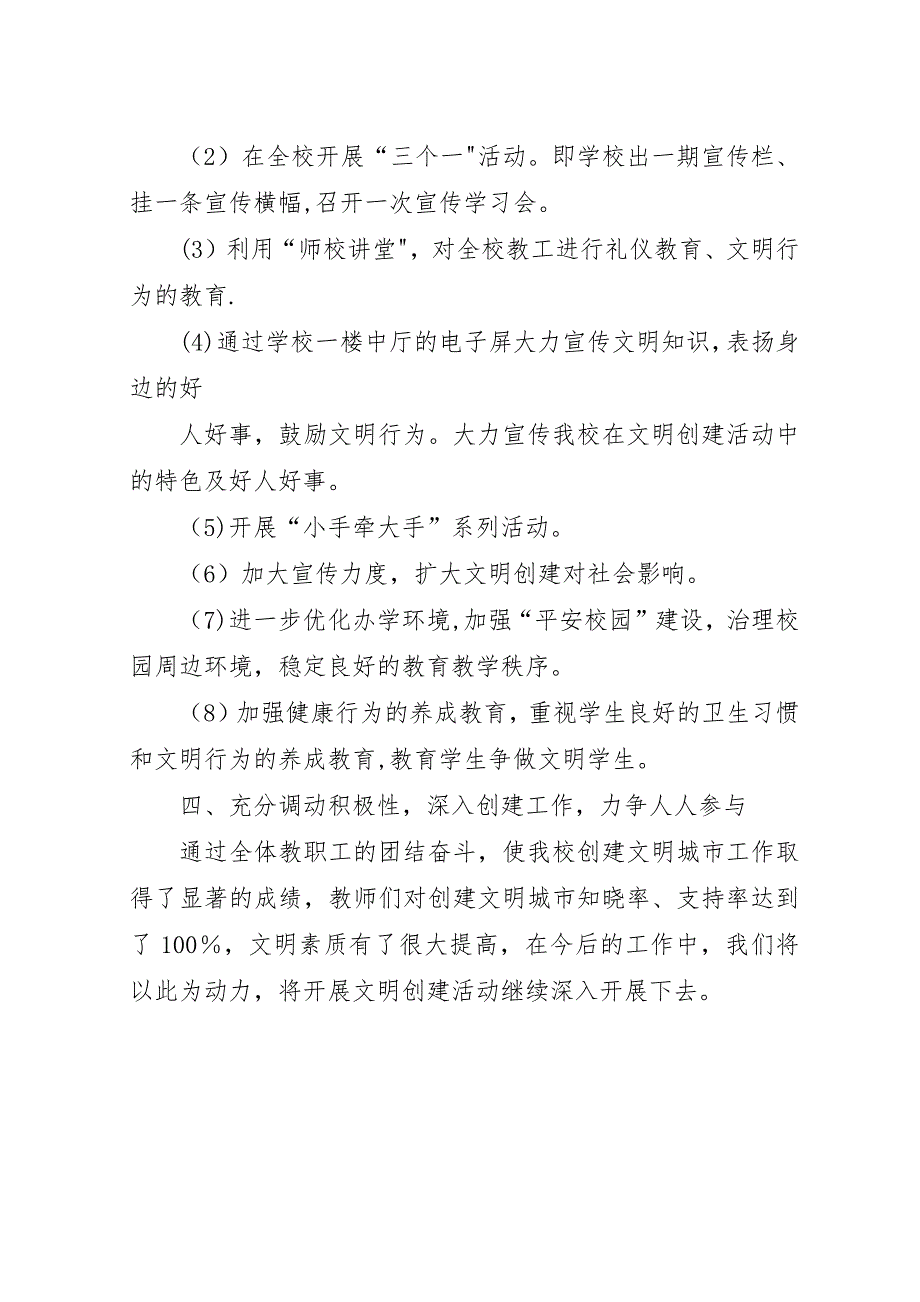 （2）在全校开展“三个一"活动。即学校出一期宣传栏、
挂一条宣传横幅,召开一次宣传学习会。
(3）利用“师校讲堂"，对全校教工进行礼仪教育、文明行
为的教育.
(4)通过学校一楼中厅的电子屏大力宣传文明知识，表扬身
边的好
人好事，鼓励文明行为。大力宣传我校在文明创建活动中
的特色及好人好事。
（5)开展“小手牵大手”系列活动。
（6）加大宣传力度，扩大文明创建对社会影响。
（7)进一步优化办学环境,加强“平安校园”建设，治理校
园周边环境，稳定良好的教育教学秩序。
（8）加强健康行为的养成教育，重视学生良好的卫生习惯
和文明行为的养成教育,教育学生争做文明学生。
四、充分调动积极性，深入创建工作，力争人人参与
通过全体教职工的团结奋斗，使我校创建文明城市工作取
得了显著的成绩，教师们对创建文明城市知晓率、支持率达到
了 100％，文明素质有了很大提高，在今后的工作中，我们将
以此为动力，将开展文明创建活动继续深入开展下去。